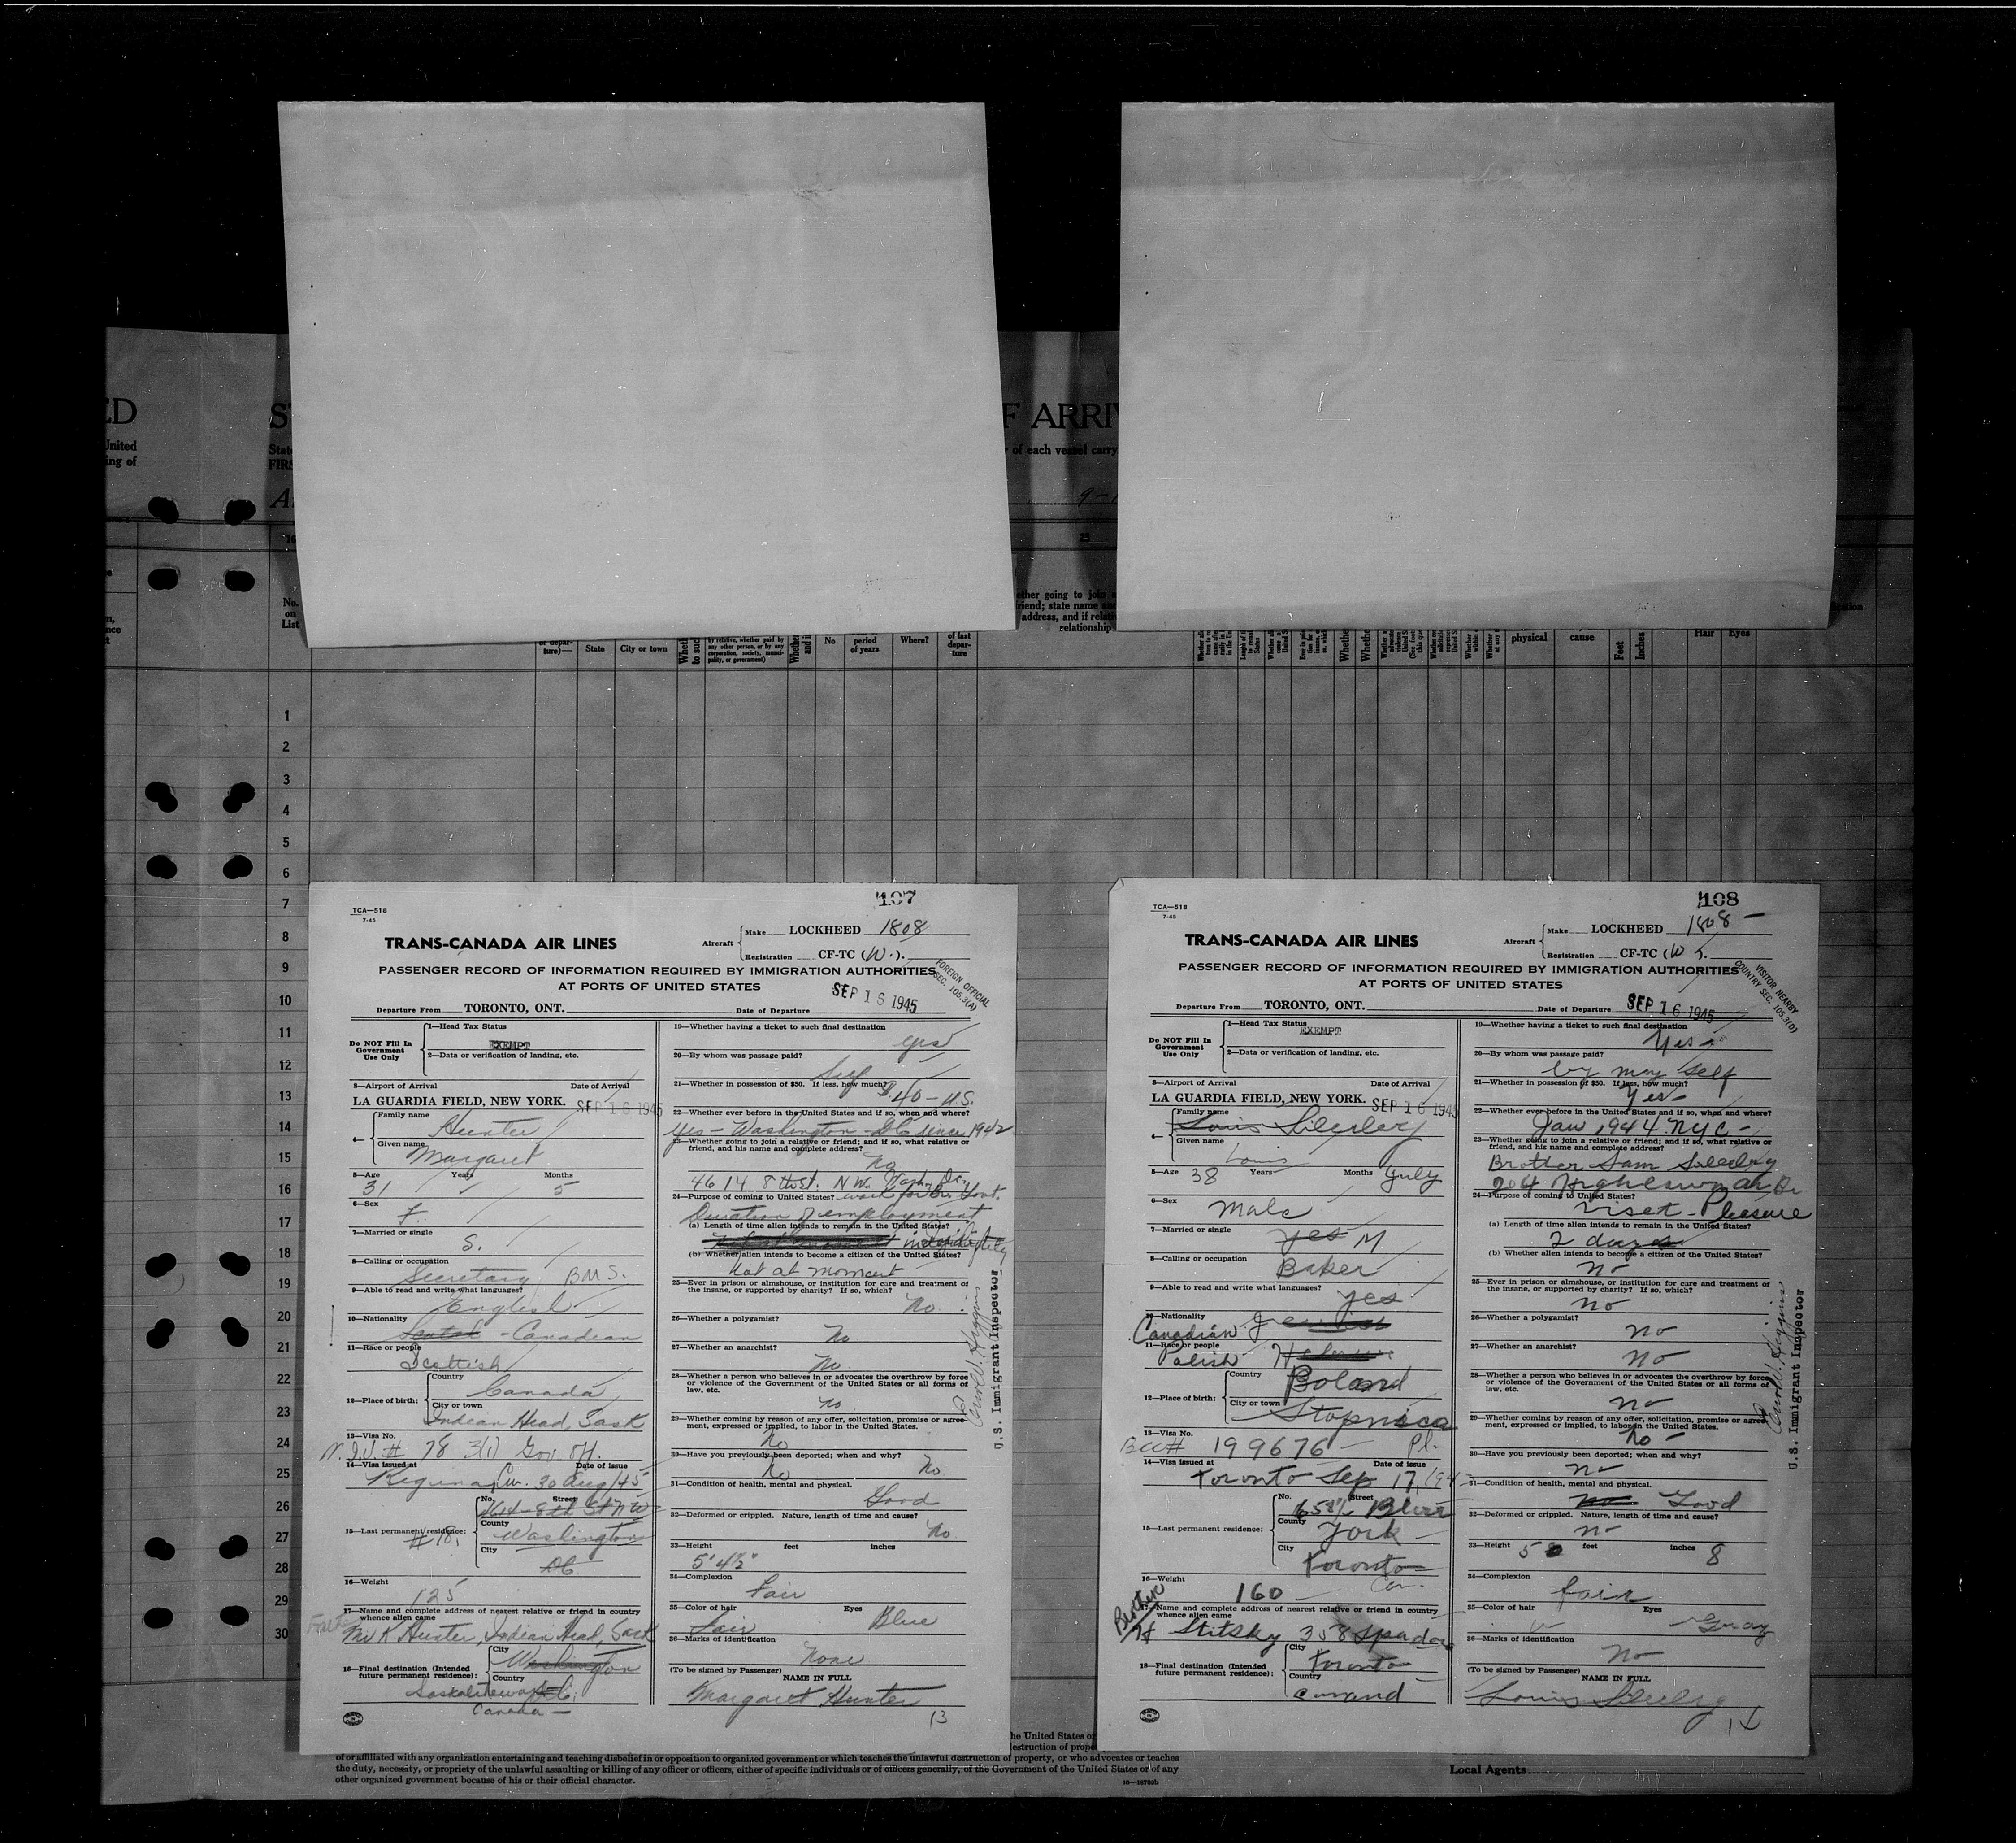 ED
United
ing of
State
FIRS
F ARRIV
of each vessel carry
No.
on
List
State
City or town
No
period
of years
Where?
of last
depar-
ture
ther going to join
riend; state name
address, and if relat
relationship
physical
cause
Feet
Inches
Hair
Eyes
1
2
3
4
5
6
7
8
9
10
11
12
13
14
15
16
17
18
19
20
21
22
23
24
25
26
27
28
29
30
107
TCA—518
7-45
TRANS-CANADA AIR LINES
Aircraft
Make LOCKHEED 1808
Registration CF-TC (W.).
PASSENGER RECORD OF INFORMATION REQUIRED BY IMMIGRATION AUTHORITIES
AT PORTS OF UNITED STATES
FOREIGN OFFICIAL
SEC. 105.3(A)
SEP 16 1945
Departure From TORONTO, ONT. Date of Departure
Do NOT Fill In
Government
Use Only
1—Head Tax Status
EXEMPT
2—Data or verification of landing, etc.
3—Airport of Arrival Date of Arrival
LA GUARDIA FIELD, NEW YORK. SEP 16 1945
4— Family name
Hunter
Given name
Margaret
5—Age Years Months
31 5
6—Sex
F.
7—Married or single
S.
8—Calling or occupation
Secretary BMS.
9—Able to read and write what languages?
English
10—Nationality
Scotch - Canadian
11—Race or people
Scottish
12—Place of birth:
Country
Canada
City or town
Indian Head, Sask
13—Visa No.
N.I.V.# 78 3(1) Gov Off.
14—Visa issued at Date of issue
Regina, Cw. 30 Aug/45
15—Last permanent residence:
No. Street
4614-8th St NW
County
Washington
City
DC
#18,
16—Weight
125
17—Name and complete address of nearest relative or friend in country
whence alien came
Father
Mr K Hunter, Indian Head, Sask
18—Final destination (Intended
future permanent residence):
City
Washington
Country
Saskatchewan
Canada —
19—Whether having a ticket to such final destination
yes
20—By whom was passage paid?
Self
21—Whether in possession of $50. If less, how much?
$40 - U.S.
22—Whether ever before in the United States and if so, when and where?
yes - Washington - DC since 1942
23—Whether going to join a relative or friend; and if so, what relative or
friend, and his name and complete address?
No
4614 8th St. N.W. Wash. DC.
24—Purpose of coming to United States? work for Br. Govt.
Duration of employment
(a) Length of time alien intends to remain in the United States?
indefinitely
(b) Whether alien intends to become a citizen of the United States?
Not at moment
25—Ever in prison or almshouse, or institution for care and treatment of
the insane, or supported by charity? If so, which?
No.
26—Whether a polygamist?
No
27—Whether an anarchist?
No.
28—Whether a person who believes in or advocates the overthrow by force
or violence of the Government of the United States or all forms of
law, etc.
No
29—Whether coming by reason of any offer, solicitation, promise or agree-
ment, expressed or implied, to labor in the United States.
No
30—Have you previously been deported; when and why?
No No
31—Condition of health, mental and physical.
Good
32—Deformed or crippled. Nature, length of time and cause?
No
33—Height feet inches
5'4½"
34—Complexion
Fair
35—Color of hair Eyes
Fair Blue
36—Marks of identification
None
(To be signed by Passenger) NAME IN FULL
Margaret Hunter
13
U.S. Immigrant Inspector
108
TCA—518
7-45
TRANS-CANADA AIR LINES
Aircraft
Make LOCKHEED 1808 —
Registration CF-TC (W).
PASSENGER RECORD OF INFORMATION REQUIRED BY IMMIGRATION AUTHORITIES
AT PORTS OF UNITED STATES
VISITOR NEARBY
COUNTRY SEC. 105.3(D)
SEP 16 1945
Departure From TORONTO, ONT. Date of Departure
Do NOT Fill In
Government
Use Only
1—Head Tax Status
EXEMPT
2—Data or verification of landing, etc.
3—Airport of Arrival Date of Arrival
LA GUARDIA FIELD, NEW YORK. SEP 16 1945
4— Family name
Louis
Given name
Louis
5—Age Years Months
38 July
6—Sex
Male
7—Married or single
yes M
8—Calling or occupation
Baker
9—Able to read and write what languages?
yes
10—Nationality
Canadian
11—Race or people
Polish Hebrew
12—Place of birth:
Country
Poland
City or town
Stopnica
Pl.
13—Visa No.
BCC# 199676 —
14—Visa issued at Date of issue
Toronto Sep 17, 194
15—Last permanent residence:
No. Street
658½ Bloor
County
York
City
Toronto
Can.
16—Weight
160
17—Name and complete address of nearest relative or friend in country
whence alien came
Brother
H Stitsky 358 Spadara
18—Final destination (Intended
future permanent residence):
City
Toronto
Country
canand
19—Whether having a ticket to such final destination
Yes
20—By whom was passage paid?
by my self
21—Whether in possession of $50. If less, how much?
Yes
22—Whether ever before in the United States and if so, when and where?
Jan 1944 NYC -
23—Whether going to join a relative or friend; and if so, what relative or
friend, and his name and complete address?
Brother Sam
204
24—Purpose of coming to United States?
Viset - Pleasure
(a) Length of time alien intends to remain in the United States?
2 days
(b) Whether alien intends to become a citizen of the United States?
no
25—Ever in prison or almshouse, or institution for care and treatment of
the insane, or supported by charity? If so, which?
no
26—Whether a polygamist?
no
27—Whether an anarchist?
no
28—Whether a person who believes in or advocates the overthrow by force
or violence of the Government of the United States or all forms of
law, etc.
no
29—Whether coming by reason of any offer, solicitation, promise or agree-
ment, expressed or implied, to labor in the United States.
no —
30—Have you previously been deported; when and why?
no
31—Condition of health, mental and physical.
no Good
32—Deformed or crippled. Nature, length of time and cause?
no
33—Height 5 feet inches 8
34—Complexion
fair
35—Color of hair Eyes
Gray
36—Marks of identification
No
(To be signed by Passenger) NAME IN FULL
Louis
U.S. Immigrant Inspector
he United States or
destruction of prope
of or affiliated with any organization entertaining and teaching disbelief in or opposition to organized government or which teaches the unlawful destruction of property, or who advocates or teaches
the duty, necessity, or propriety of the unlawful assaulting or killing of any officer or officers, either of specific individuals or of officers generally, of the Government of the United States or of any
other organized government because of his or their official character.
Local Agents